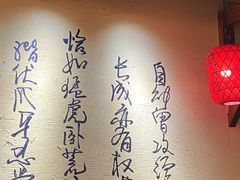 自幼曾攻经
长成亦有权
恰如猛虎卧荒
潜伏爪牙忍